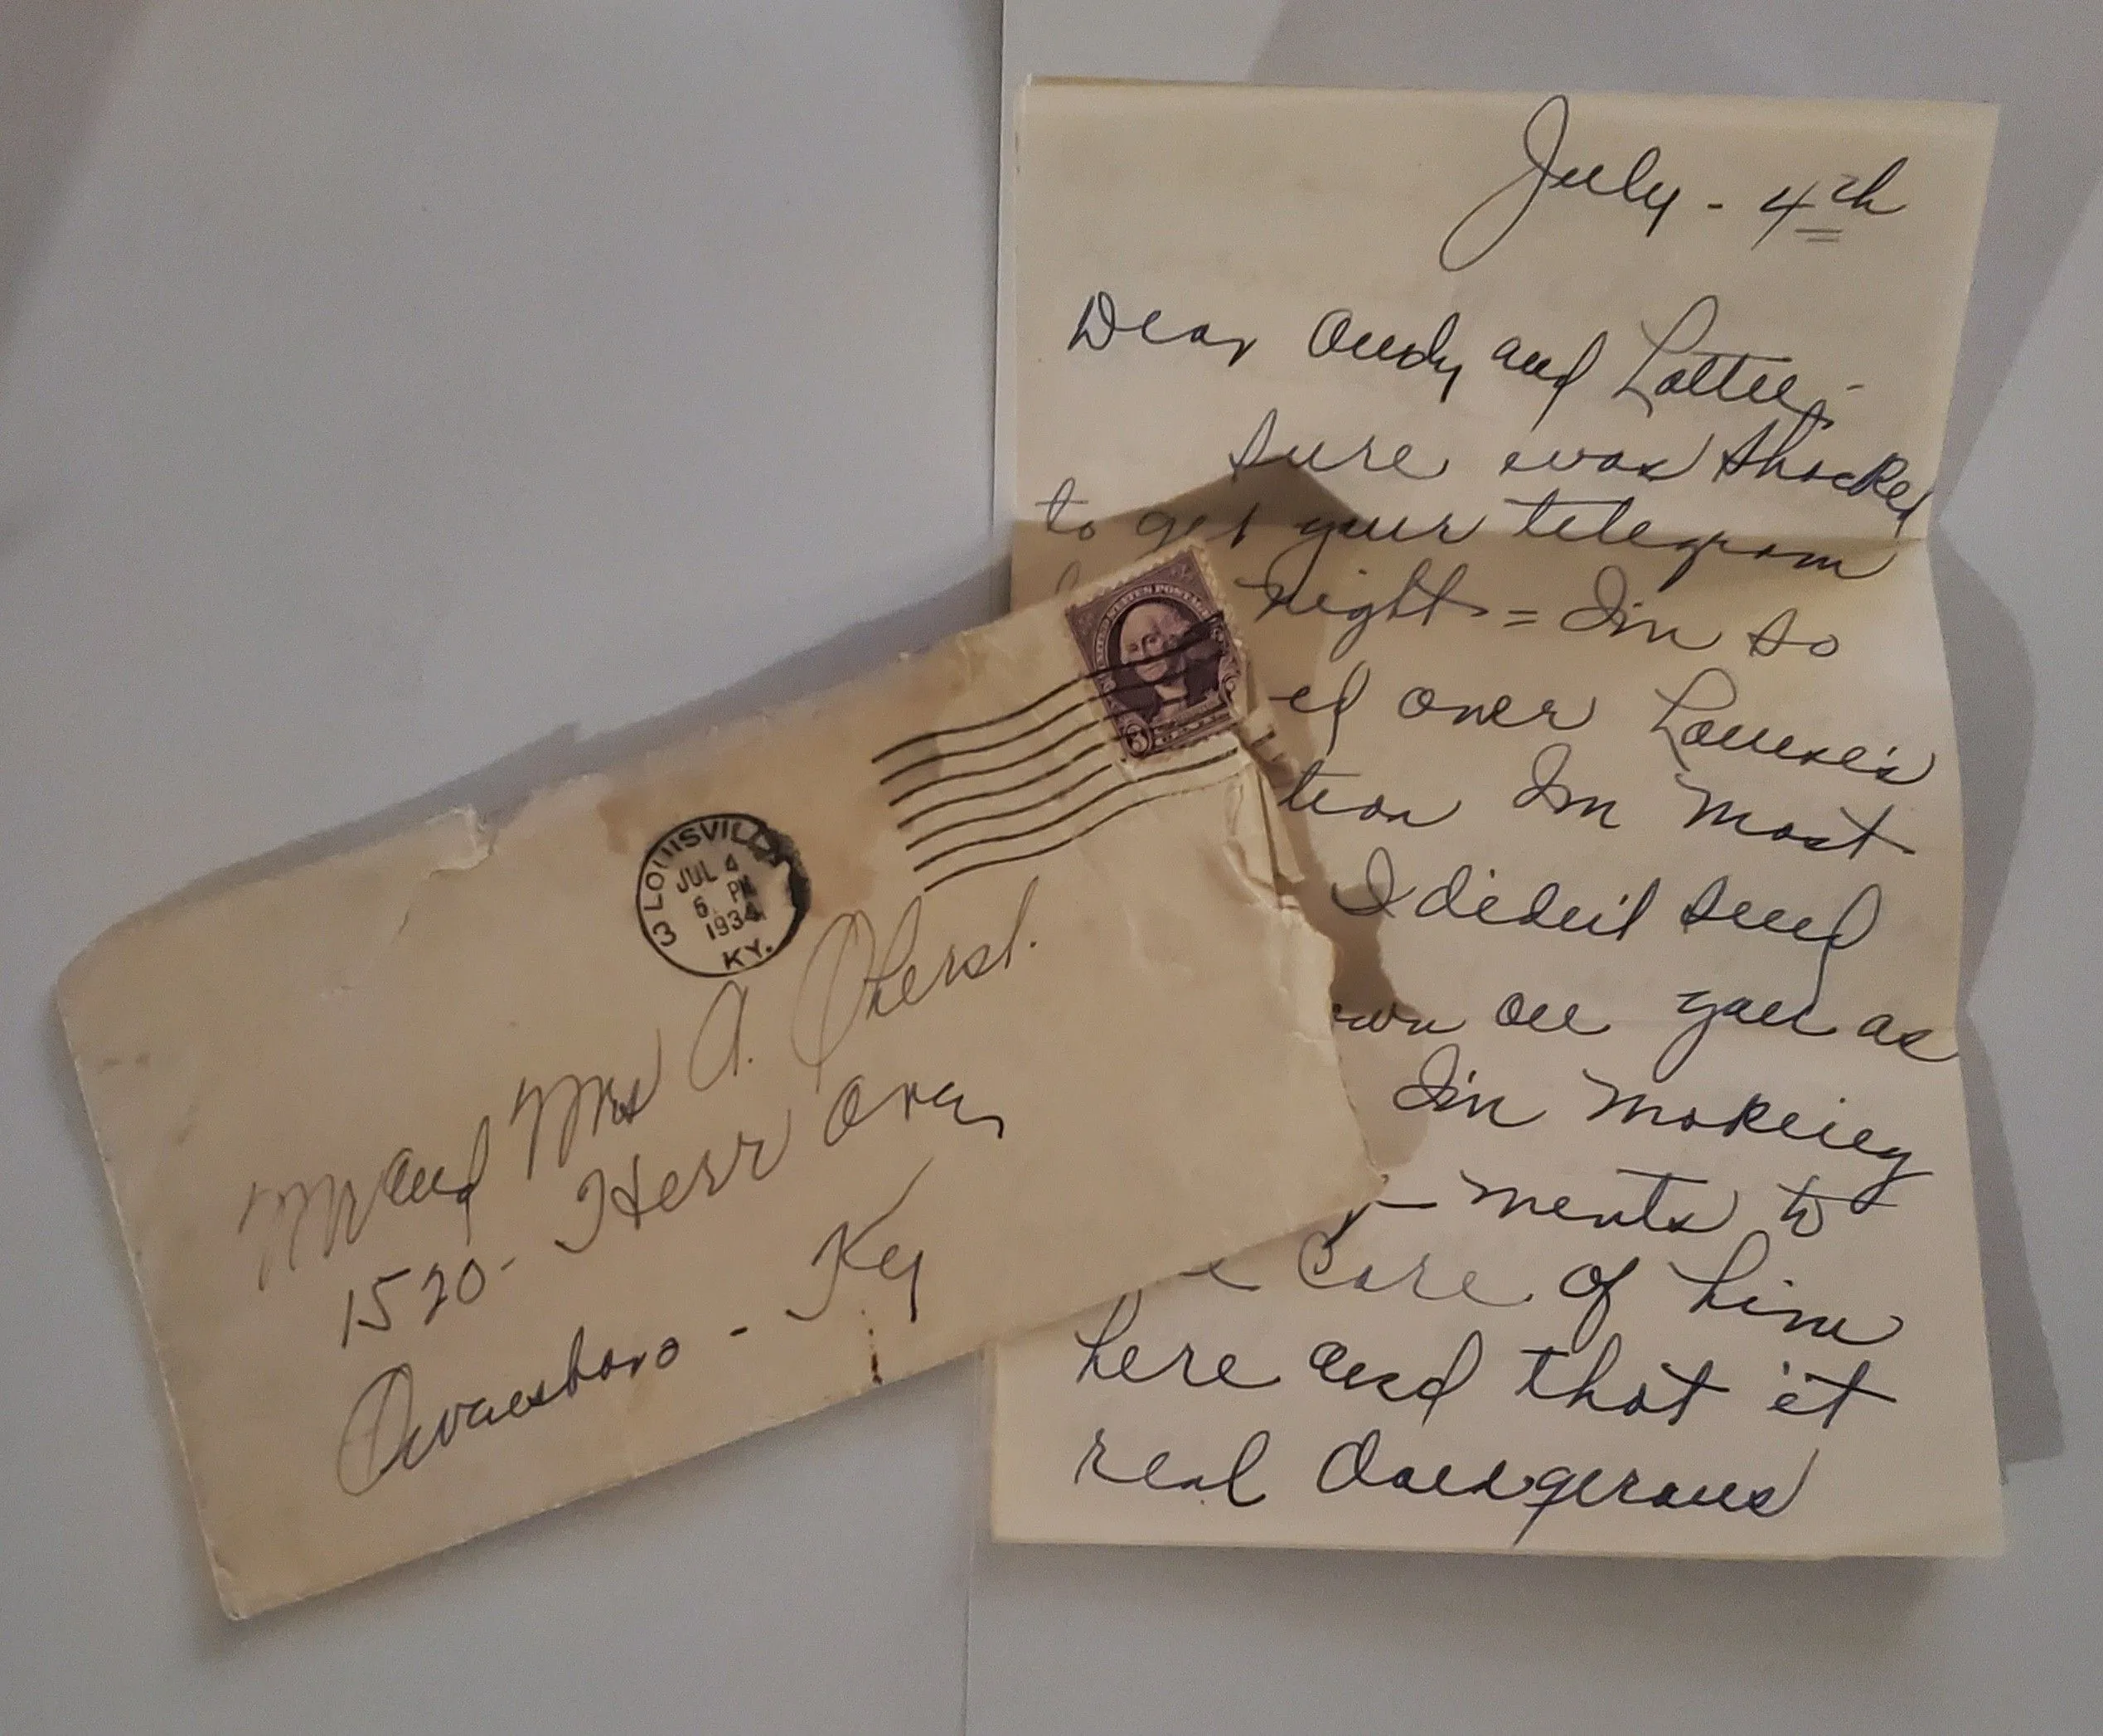 July - 4th
Dear Andy and Lottie,-
sure was shocked
to get your telegram
night = I'm so
ed over Louise's
tion Im most
I didn't send
own on you as
I'm making
- ments to
e Care of him
here and that it
real dangerous
UNITED STATES POSTAGE
3 3
LOUISVILLE
3
JUL 4
6 PM
1934
KY.
Mr and Mrs A. Oberst.
1520- Herr Ave,
Owensboro - Ky